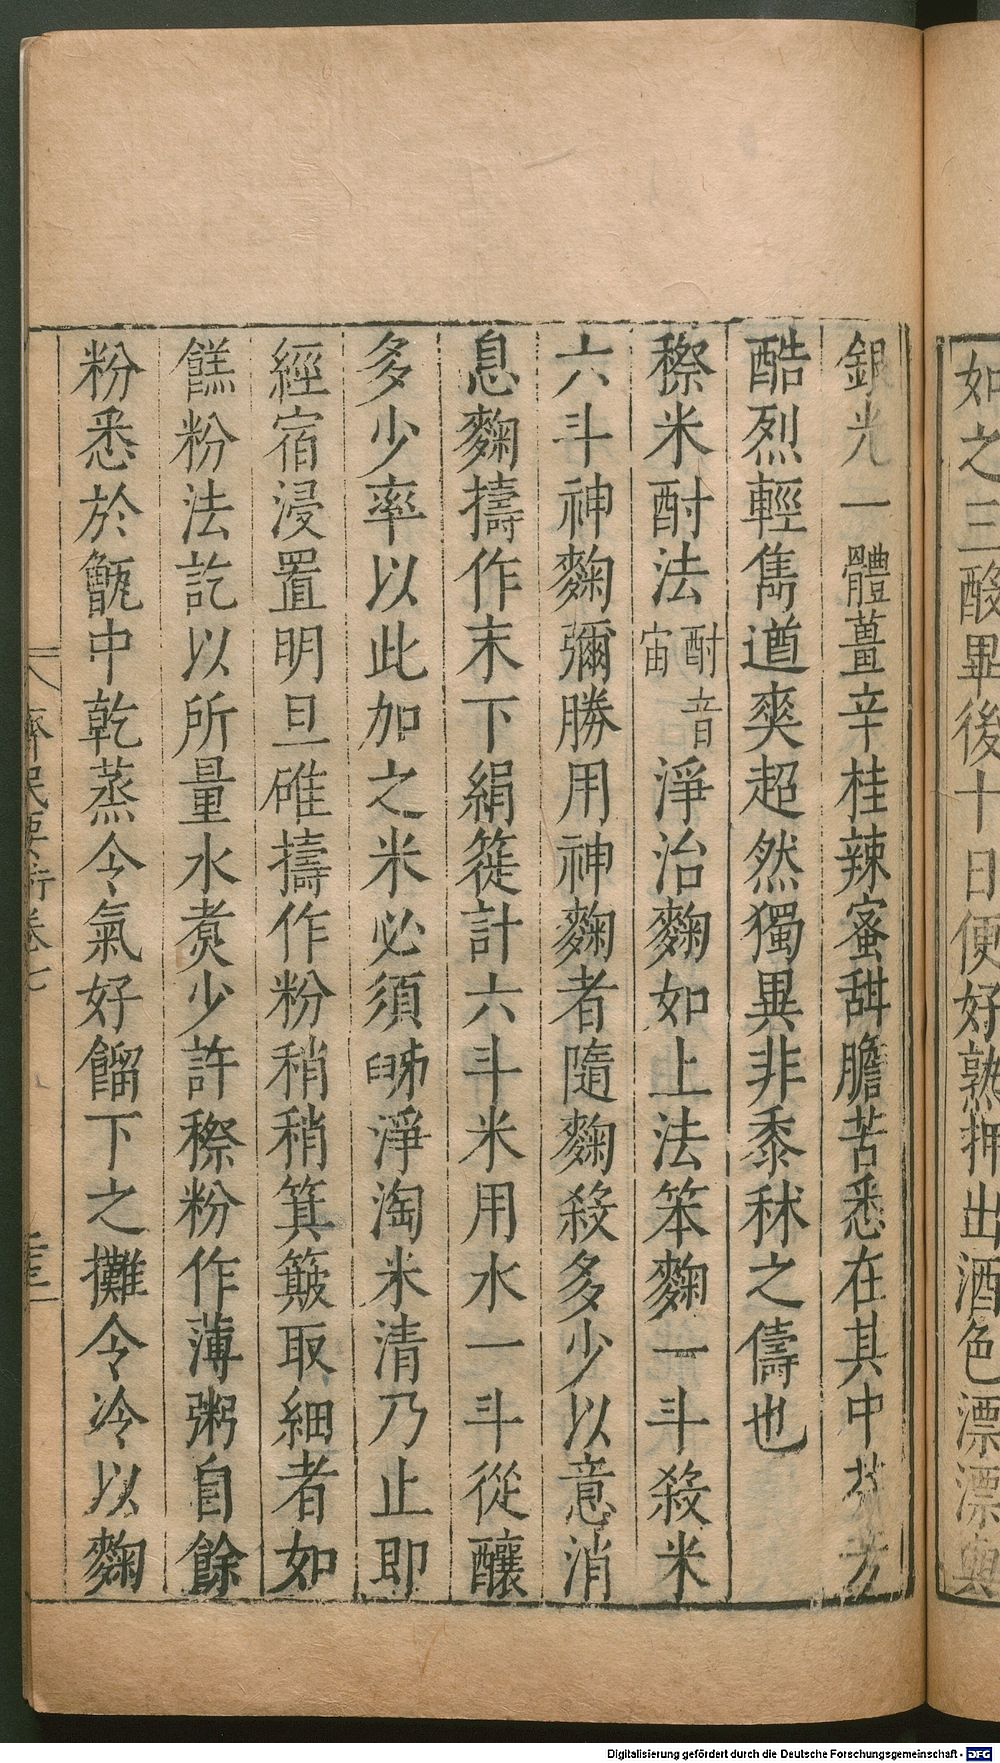 如之三酘畢後十日便好熟押出酒色漂漂與
銀光一體薑辛桂辣蜜甜膽苦悉在其中芬芳
酷烈輕雋遒爽超然獨異非黍秫之儔也
穄米酎法酎音宙淨治麴如上法笨麴一斗殺米
六斗神麴彌勝用神麴者隨麴殺多少以意消
息麴擣作末下絹簁計六斗米用水一斗從釀
多少率以此加之米必須淨淘米清乃止即
經宿浸置明旦碓擣作粉稍稍箕簸取細者如
餻粉法訖以所量水煑少許穄粉作薄粥自餘
粉悉於甑中乾蒸令氣好餾下之攤令冷以麴
齊民要術卷七
Digitalisierung gefördert durch die Deutsche Forschungsgemeinschaft - DFG